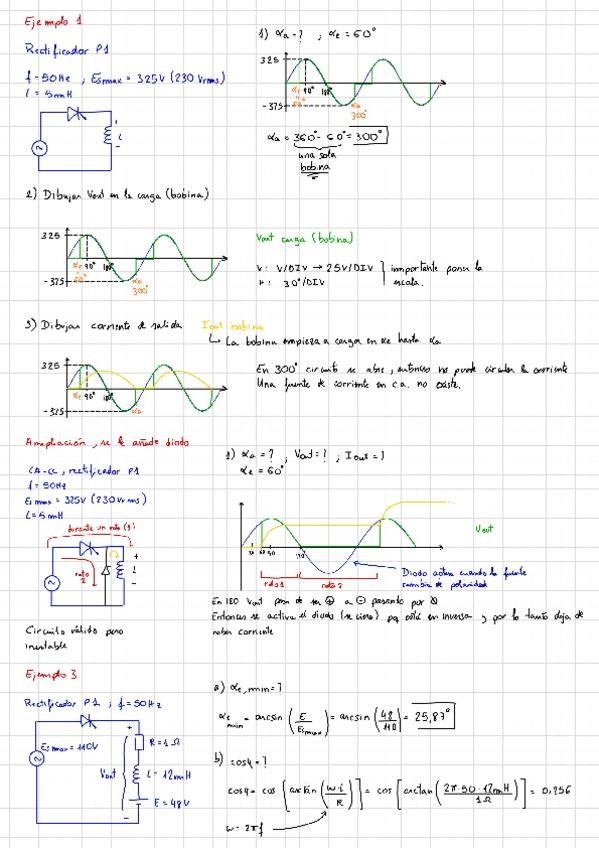 Ejemplo 1
Rectificador P1
f=50Hz , Esmax = 325V (230 Vrms)
L = 5mH
L
+
-
1) αa=? ; αe=60°
325
-375
αe 90° 180°
60°
αa
300°
αa = 360° - 60° = 300°
una sola
bobina
2) Dibujar Vout en la carga (bobina)
325
-325
αe 90° 180°
60°
αa
300°
Vout carga (bobina)
V: V/DIV → 25V/DIV
H: 30°/DIV
importante poner la
escala.
3) Dibujar corriente de salida Iout bobina
↳ La bobina empieza a carga en αe hasta αa
325
-325
αe 90° 180°
αa
En 300° circuito se abre, entonces no puede circular la corriente
Una fuente de corriente en c.a. no existe.
Ampliación, se le añade diodo
CA-CC, rectificador P1
f = 50Hz
Esmax = 325V (230 Vrms)
L=5mH
durante un rato (1)
rato
2
+
L
-
Circuito válido pero
inestable
1) αa = ? ; Vout=? ; Iout=?
αe = 60°
30 60 90
180
Vout
rato 1
rato 2
Diodo actua cuando la fuente
cambia de polaridad
En 180 Vout pasa de ser ⊕ a ⊖ pasando por 0
Entonces se activa el diodo (se cierra) pq está en inversa y por lo tanto deja de
haber corriente
Ejemplo 3
Rectificador P1 ; f=50Hz
Esmax = 110V
Vout
+
-
R=1Ω
L=12mH
E=48V
a) αe,min=?
αe min = arcsin (E/Esmax) = arcsin (48/110) = 25,87°
b) cosφ=?
cosφ = cos [arctan (w·L/R)] = cos [arctan (2π·50·12mH/1Ω)] = 0,256
w = 2πf